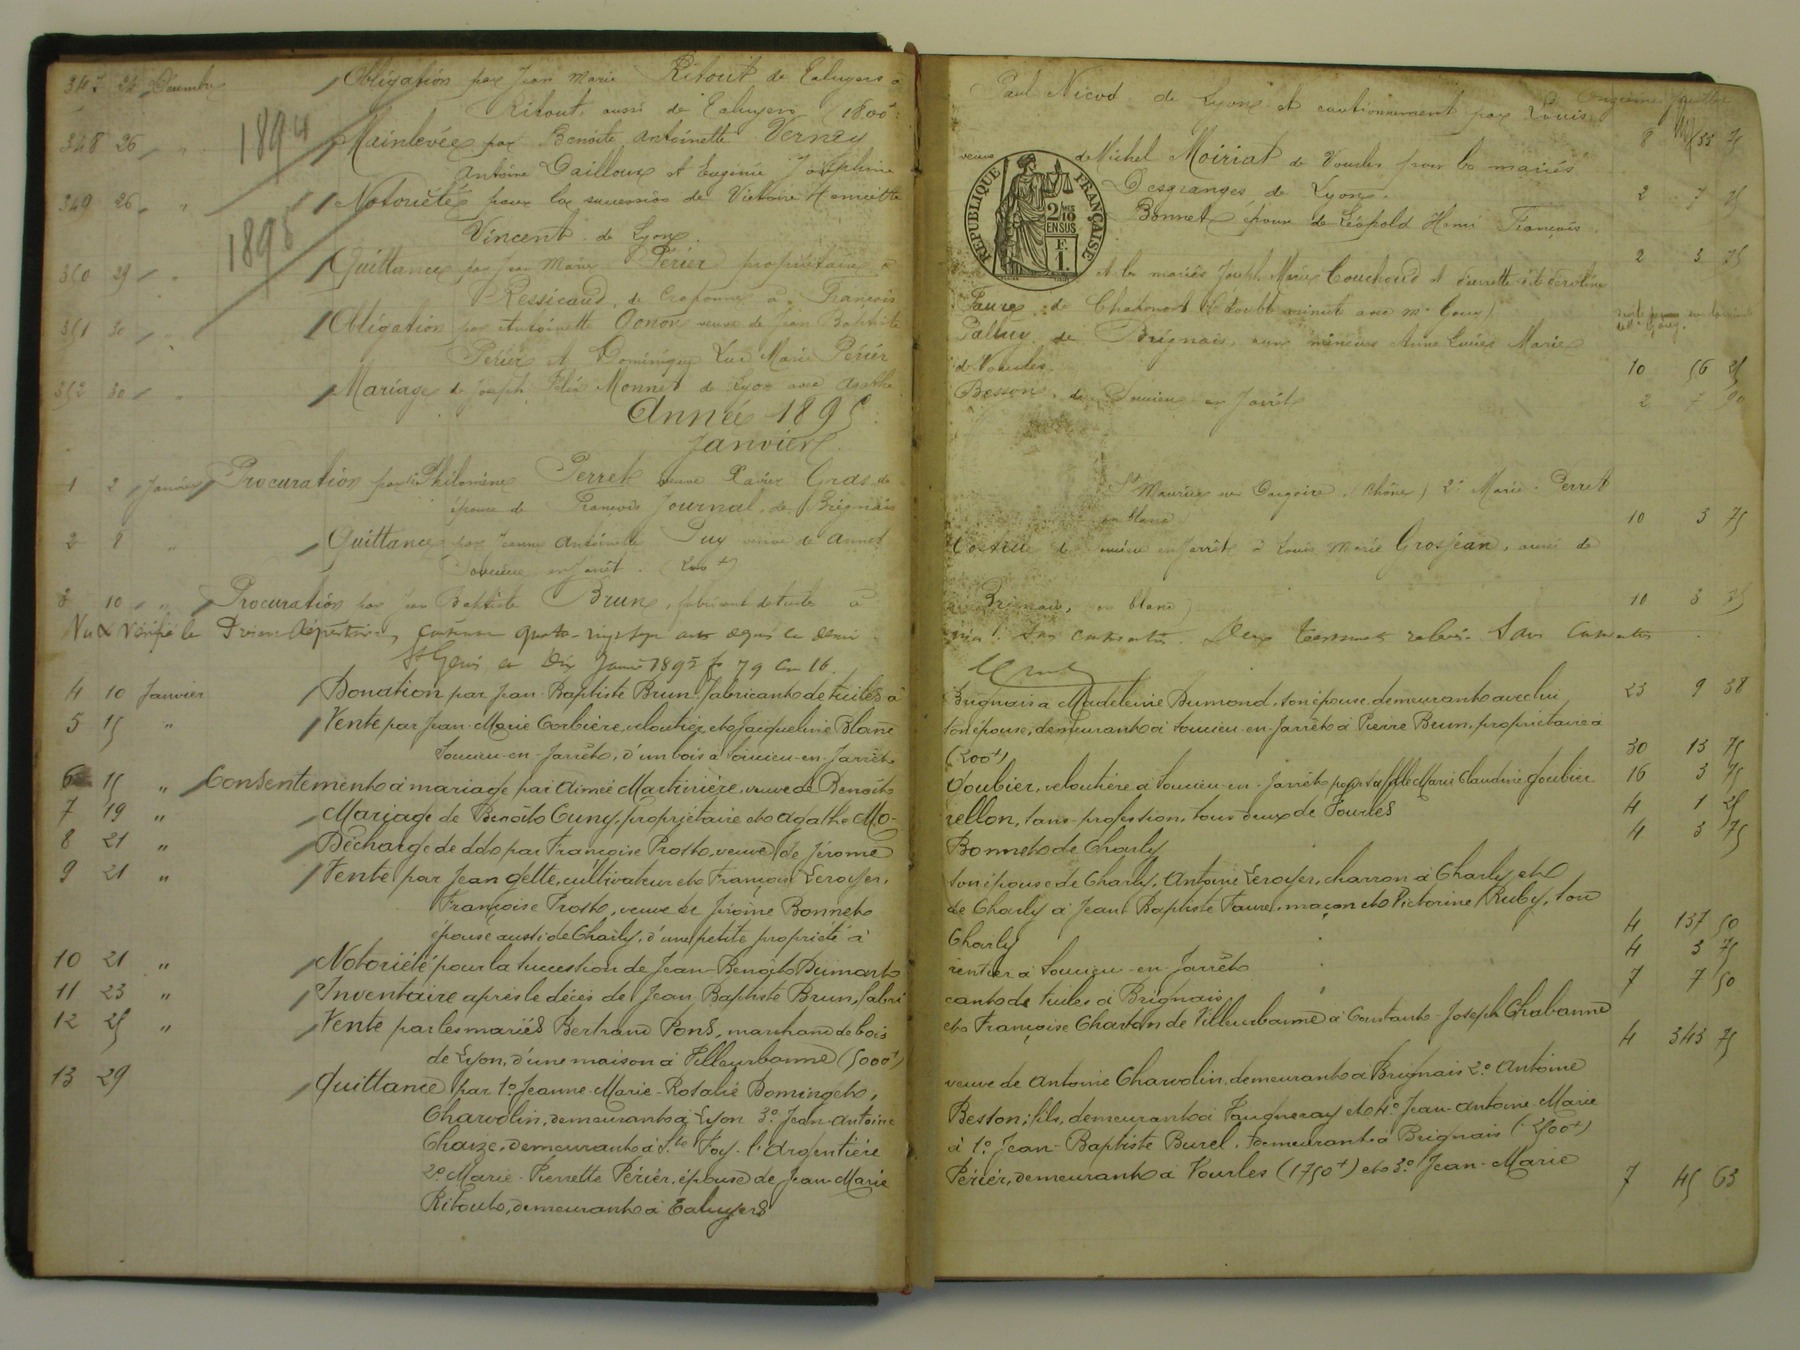 347 24 Décembre Obligation par Jean Marie Ritout de Taluyers à Paul Nicod de Lyon et cautionnement par Louis
Ritout, aussi de Taluyers (1800
1894
348 26 " " Mainlevée par Benoite Antoinette Verney veuve de Michel Moiriat de Vourles pour les mariés
Antoine Dailloux et Eugénie Joséphine Desgranges de Lyon. 2 7 25
349 26 " " Notoriété pour la succession de Victoire Henriette Bonnet épouse de Léopold Henri François
Vincent de Lyon. 2 3 75
RÉPUBLIQUE FRANÇAISE
2/10 EN SUS
F. 1.
1895
350 29 " " Quittance par Jean Marie Périer propriétaire à et les mariés Joseph Marie Couchoud et Pierrette
Ressicaud, de Craponne à François Faure de Chaponost
351 30 " " Obligation par Antoinette Gonon veuve de Jean Baptiste Palluy de Brignais, aux mineurs Anne Louise Marie
Périer et Dominique Luc Marie Périer de Vourles. 10 56 25
352 30 " " Mariage de Joseph Félix Monnet de Lyon avec Agathe Besson, de Soucieu en Jarrêt 2 7 50
Année 1895
Janvier
1 2 Janvier Procuration par Philomène Perret veuve Xavier Gras de St Maurice sur Dargoire (Rhône) 2° Marie Perret
épouse de François Journal, de Brignais en blanc 10 3 75
2 8 " Quittance par Jeanne Antoinette Puy veuve de Annet à Louis Marie Grosjean, aussi de
Soucieu en Jarrêt.
3 10 " " Procuration par Jean Baptiste Brun, fabricant de tuiles à Brignais, en blanc) 10 3 75
Vu & Vérifié le Présent Répertoire, contenant quatre-vingt
St Genis le Dix Janvier 1895 f° 79 Cse 16.
4 10 Janvier Donation par Jean-Baptiste Brun, fabricant de tuiles à Brignais à Madeleine Dumond, son épouse, demeurant avec lui 23 9 38
5 15 " Vente par Jean-Marie Corbière, veloutier et Jacqueline Blanc son épouse, demeurant à Soucieu-en-Jarrêt à Pierre Brun, propriétaire à
Soucieu-en-Jarrêt, d'un bois à Soucieu-en-Jarrêt (200f) 30 13 75
6 15 " Consentement à mariage par Aimée Martinière, veuve de Benoît Joubier, veloutière à Soucieu-en-Jarrêt pour sa fille Marie Claudine Joubier 16 3 75
7 19 " Mariage de Benoît Cuny, propriétaire et Agathe Morellon, sans profession, tous deux de Vourles 4 1 25
8 21 " Décharge de ddo par Françoise Prost, veuve de Jérome Bonnet de Charly 4 3 75
9 21 " Vente par Jean Gette, cultivateur et François Leroyer, son épouse de Charly, Antoine Leroyer, charron à Charly et
Françoise Prost, veuve de Jérôme Bonnet de Charly à Jean Baptiste Faure, maçon et Victorine Ruby, son
épouse aussi de Charly, d'une petite propriété à Charly 4 137 50
10 21 " Notoriété pour la succession de Jean-Benoît Dumart rentier à Soucieu-en-Jarrêt 4 3 75
11 23 " Inventaire après le décès de Jean Baptiste Brun, fabricant de tuiles à Brignais 7 7 50
12 25 " Vente par les mariés Bertrand Pons, marchand de bois et Françoise Charton de Villeurbanne à Constant-Joseph Chabanne
de Lyon, d'une maison à Villeurbanne (5000f) 4 343 75
13 29 Quittance par 1° Jeanne-Marie-Rosalie Domingeto, veuve de Antoine Charvolin, demeurant à Brignais 2° Antoine
Charvolin, demeurant à Lyon 3° Jean-Antoine Besson, fils, demeurant à Vaugneray et 4° Jean-Antoine-Marie
Chaize, demeurant à Ste Foy-l'Argentière à 1° Jean-Baptiste Burel, demeurant à Brignais
2° Marie-Pierrette Périer, épouse de Jean-Marie Périer, demeurant à Vourles (1750f) et 3° Jean-Marie
Ritout, demeurant à Taluyers 7 45 63